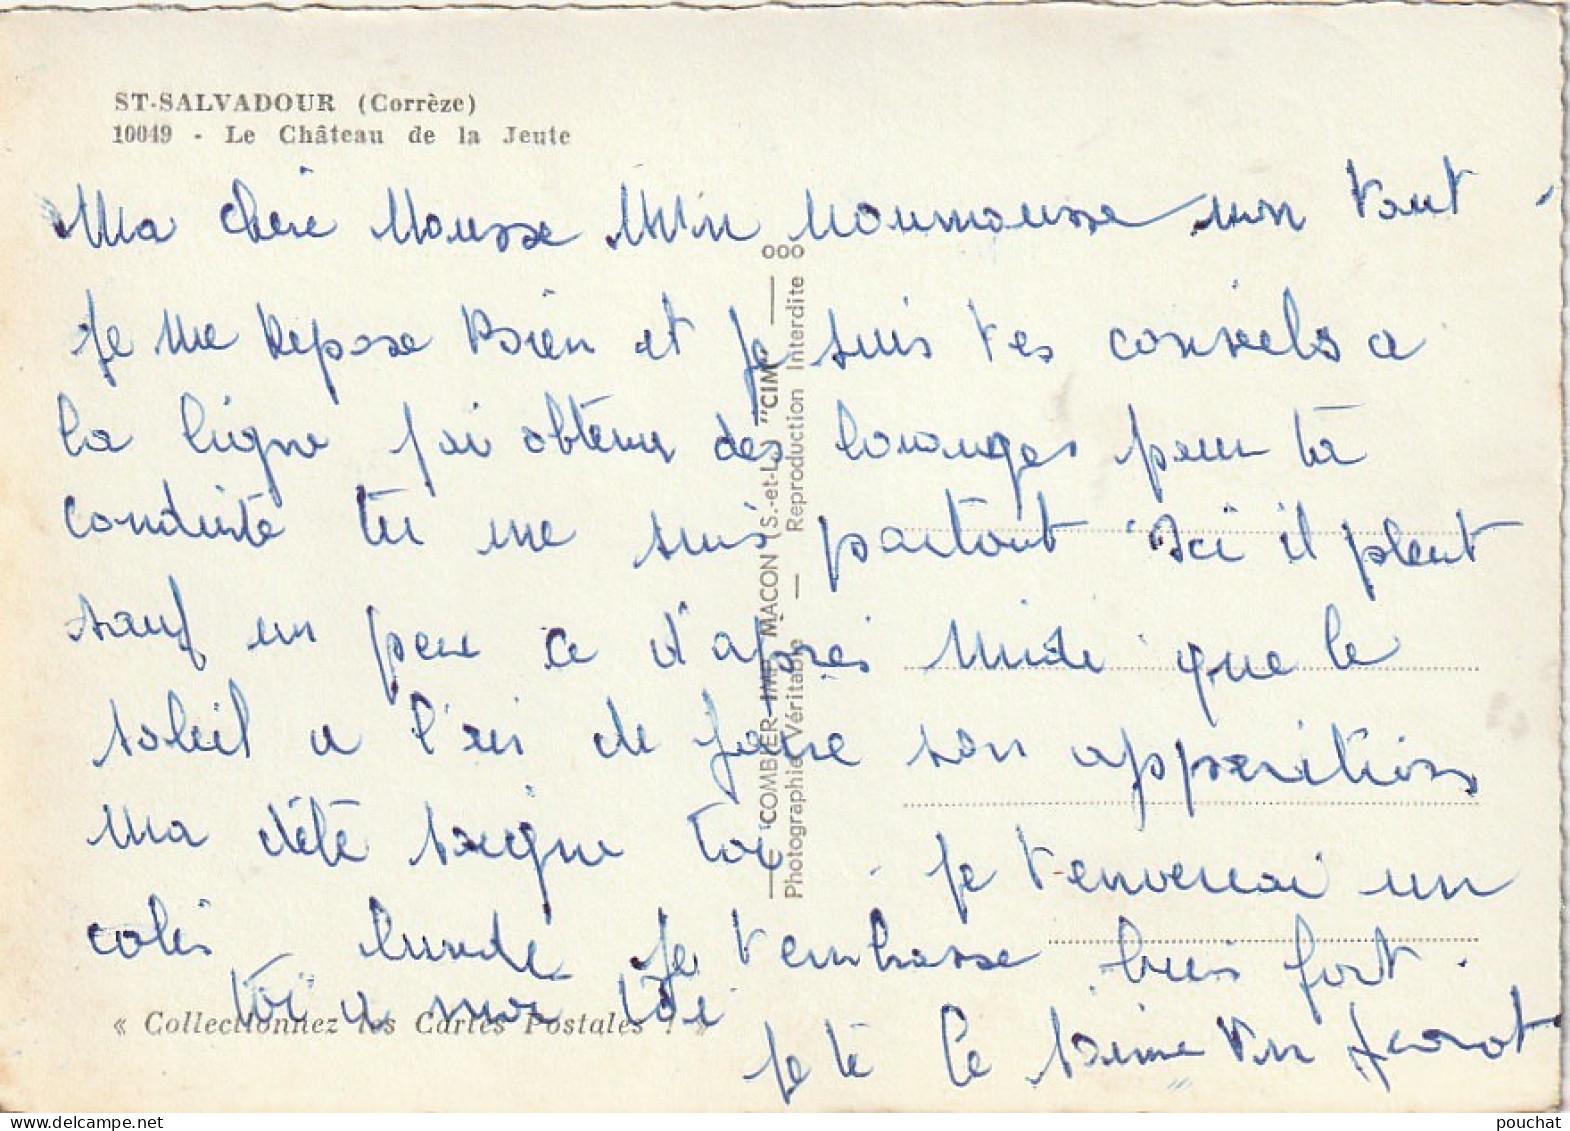 ST-SALVADOUR (Corrèze)
10049 - Le Château de la Jeute
Ma chère Mousse Mon Moumousse mon tout
je me repose Bien et je suis tes conseils a
la ligne j'ai obtenu des louanges pour ta
conduite tu me suis partout Ici il pleut
sauf un peu ce d'après Midi que le
soleil a de faire son apparition
ma soigne toi . je t'enverrai un
colis lundi je t'embrasse bien fort .
toi a moi toi
je te le
« Collectionnez les Cartes Postales ! »
COMBIER IMP. MACON (S.-et-L.) "CIM"
Photographie Véritable — Reproduction Interdite
pouchat